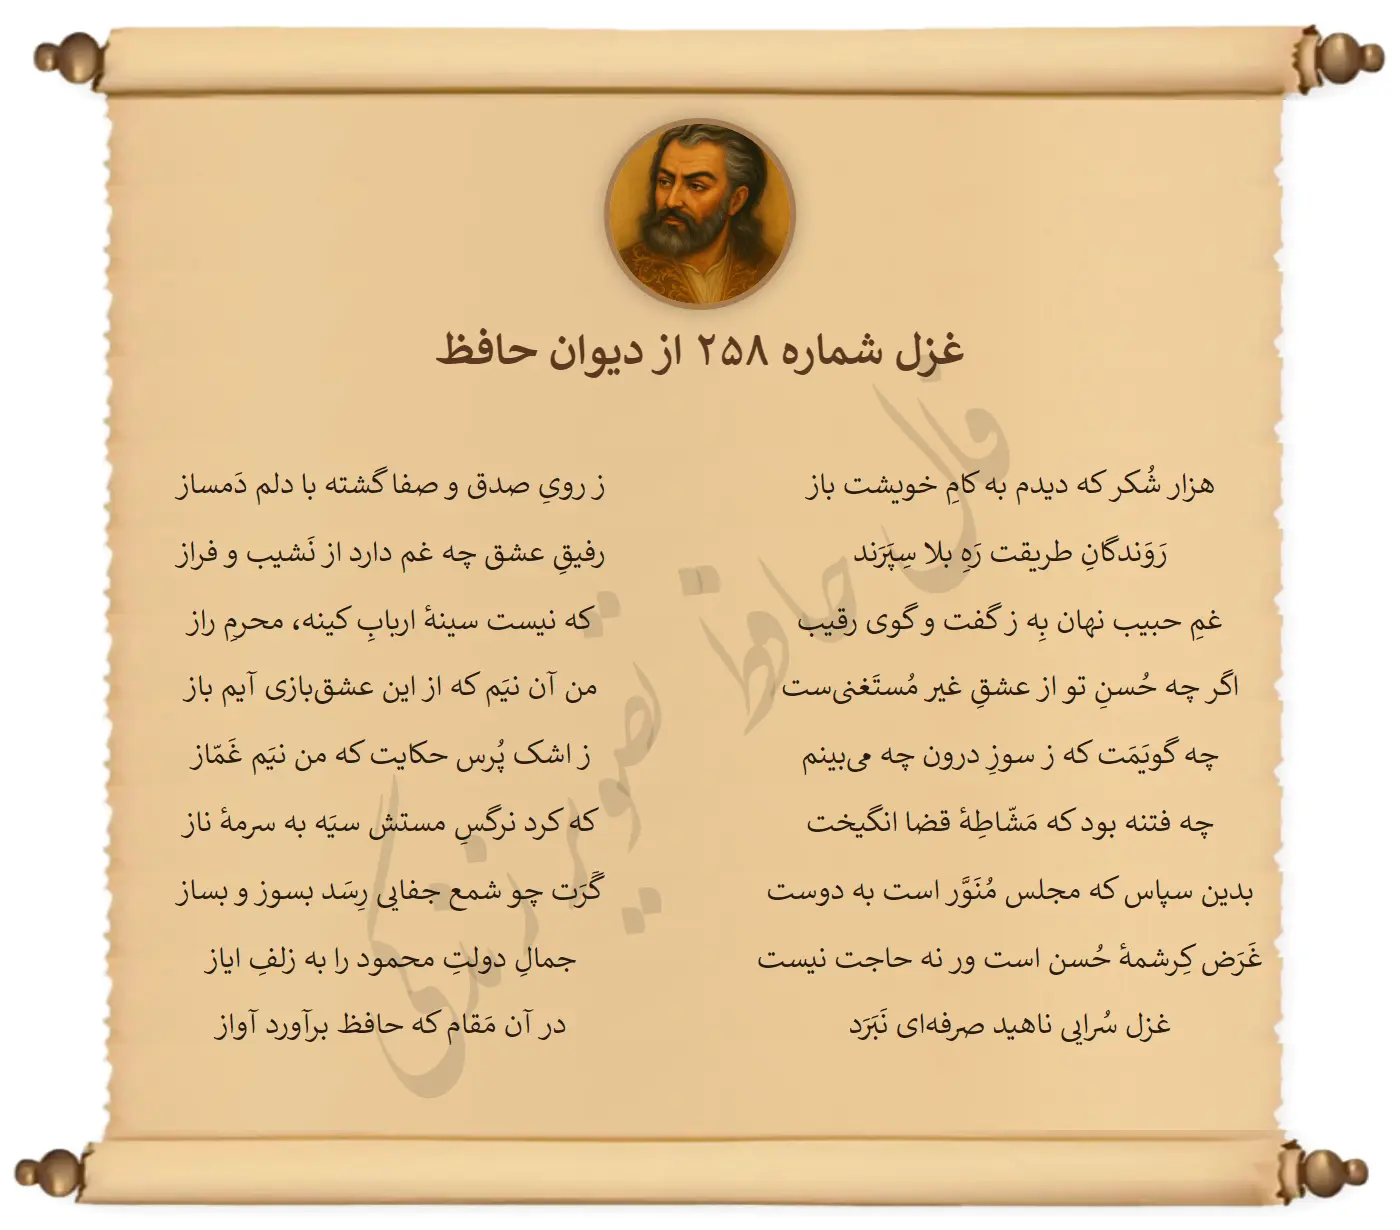 غزل شماره ۲۵۸ از دیوان حافظ
هزار شُکر که دیدم به کامِ خویشت باز
ز رویِ صدق و صفا گشته با دلم دَمساز
رَوَندگانِ طریقت رَهِ بلا سِپَرَند
رفیقِ عشق چه غم دارد از نَشیب و فراز
غمِ حبیب نهان بِه ز گفت و گوی رقیب
که نیست سینهٔ اربابِ کینه، محرمِ راز
اگر چه حُسنِ تو از عشقِ غیر مُستَغنی‌ست
من آن نیَم که از این عشق‌بازی آیم باز
چه گویَمَت که ز سوزِ درون چه می‌بینم
ز اشک پُرس حکایت که من نیَم غَمّاز
چه فتنه بود که مَشّاطِهٔ قضا انگیخت
که کرد نرگسِ مستش سیَه به سرمهٔ ناز
بدین سپاس که مجلس مُنَوَّر است به دوست
گَرَت چو شمع جفایی رِسَد بسوز و بساز
غَرَض کِرشمهٔ حُسن است ور نه حاجت نیست
جمالِ دولتِ محمود را به زلفِ ایاز
غزل سُراییِ ناهید صرفه‌ای نَبَرَد
در آن مَقام که حافظ برآورد آواز
فال حافظ تصویر زندگی